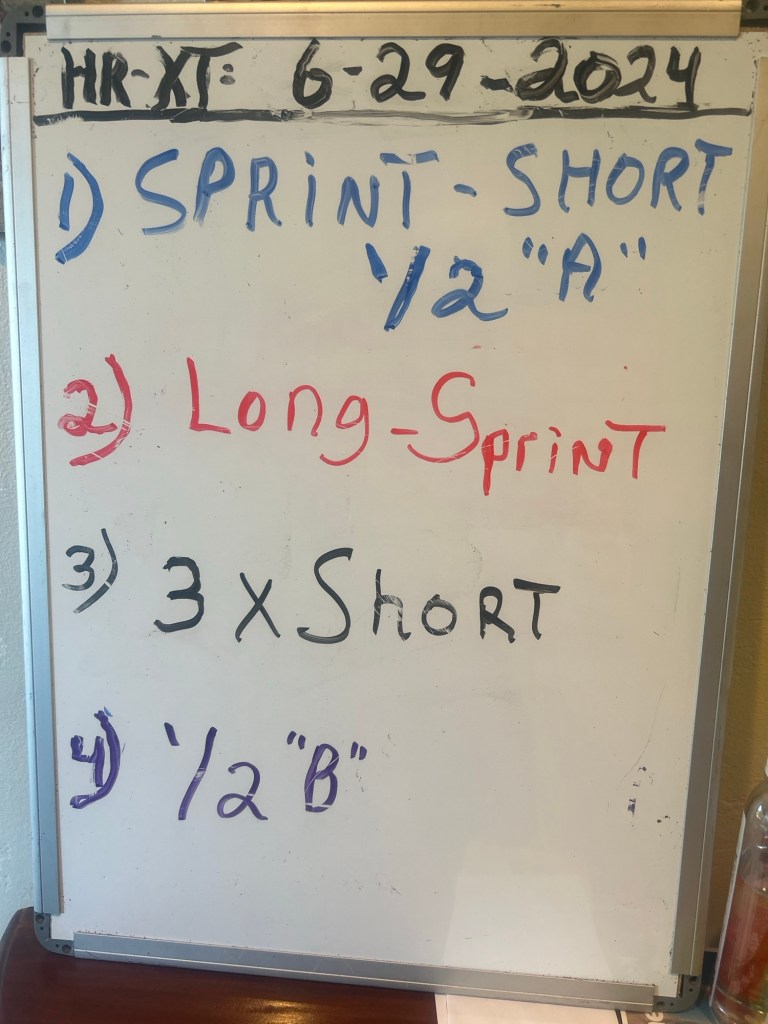 HR-XT: 6-29-2024
1) SPRiNT - SHORT
1/2 "A"
2) Long-SpriNT
3) 3 x ShoRT
4) 1/2 "B"